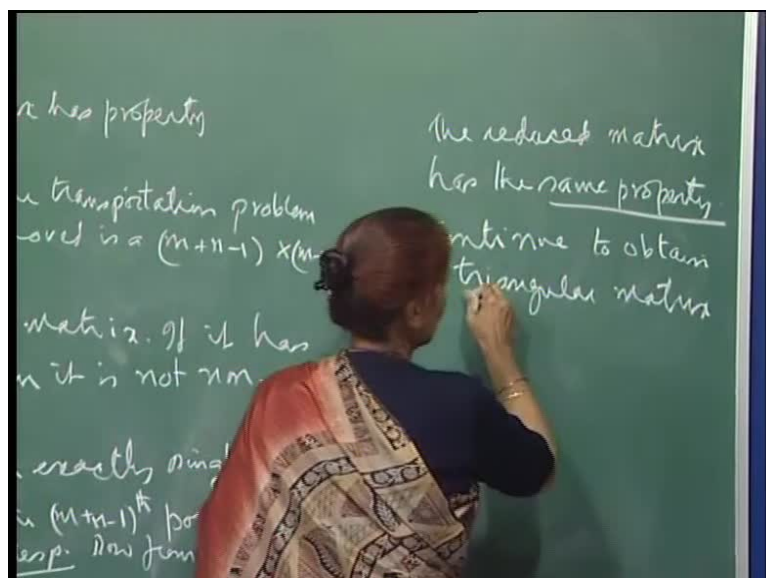 has property
transportation problem
is a (m+n-1) ×(m-
matrix. If it has
it is not non-
exactly sing
(m+n-1)th po
esp. Row from
The reduced matrix
has the same property.
ntinue to obtain
triangular matrix